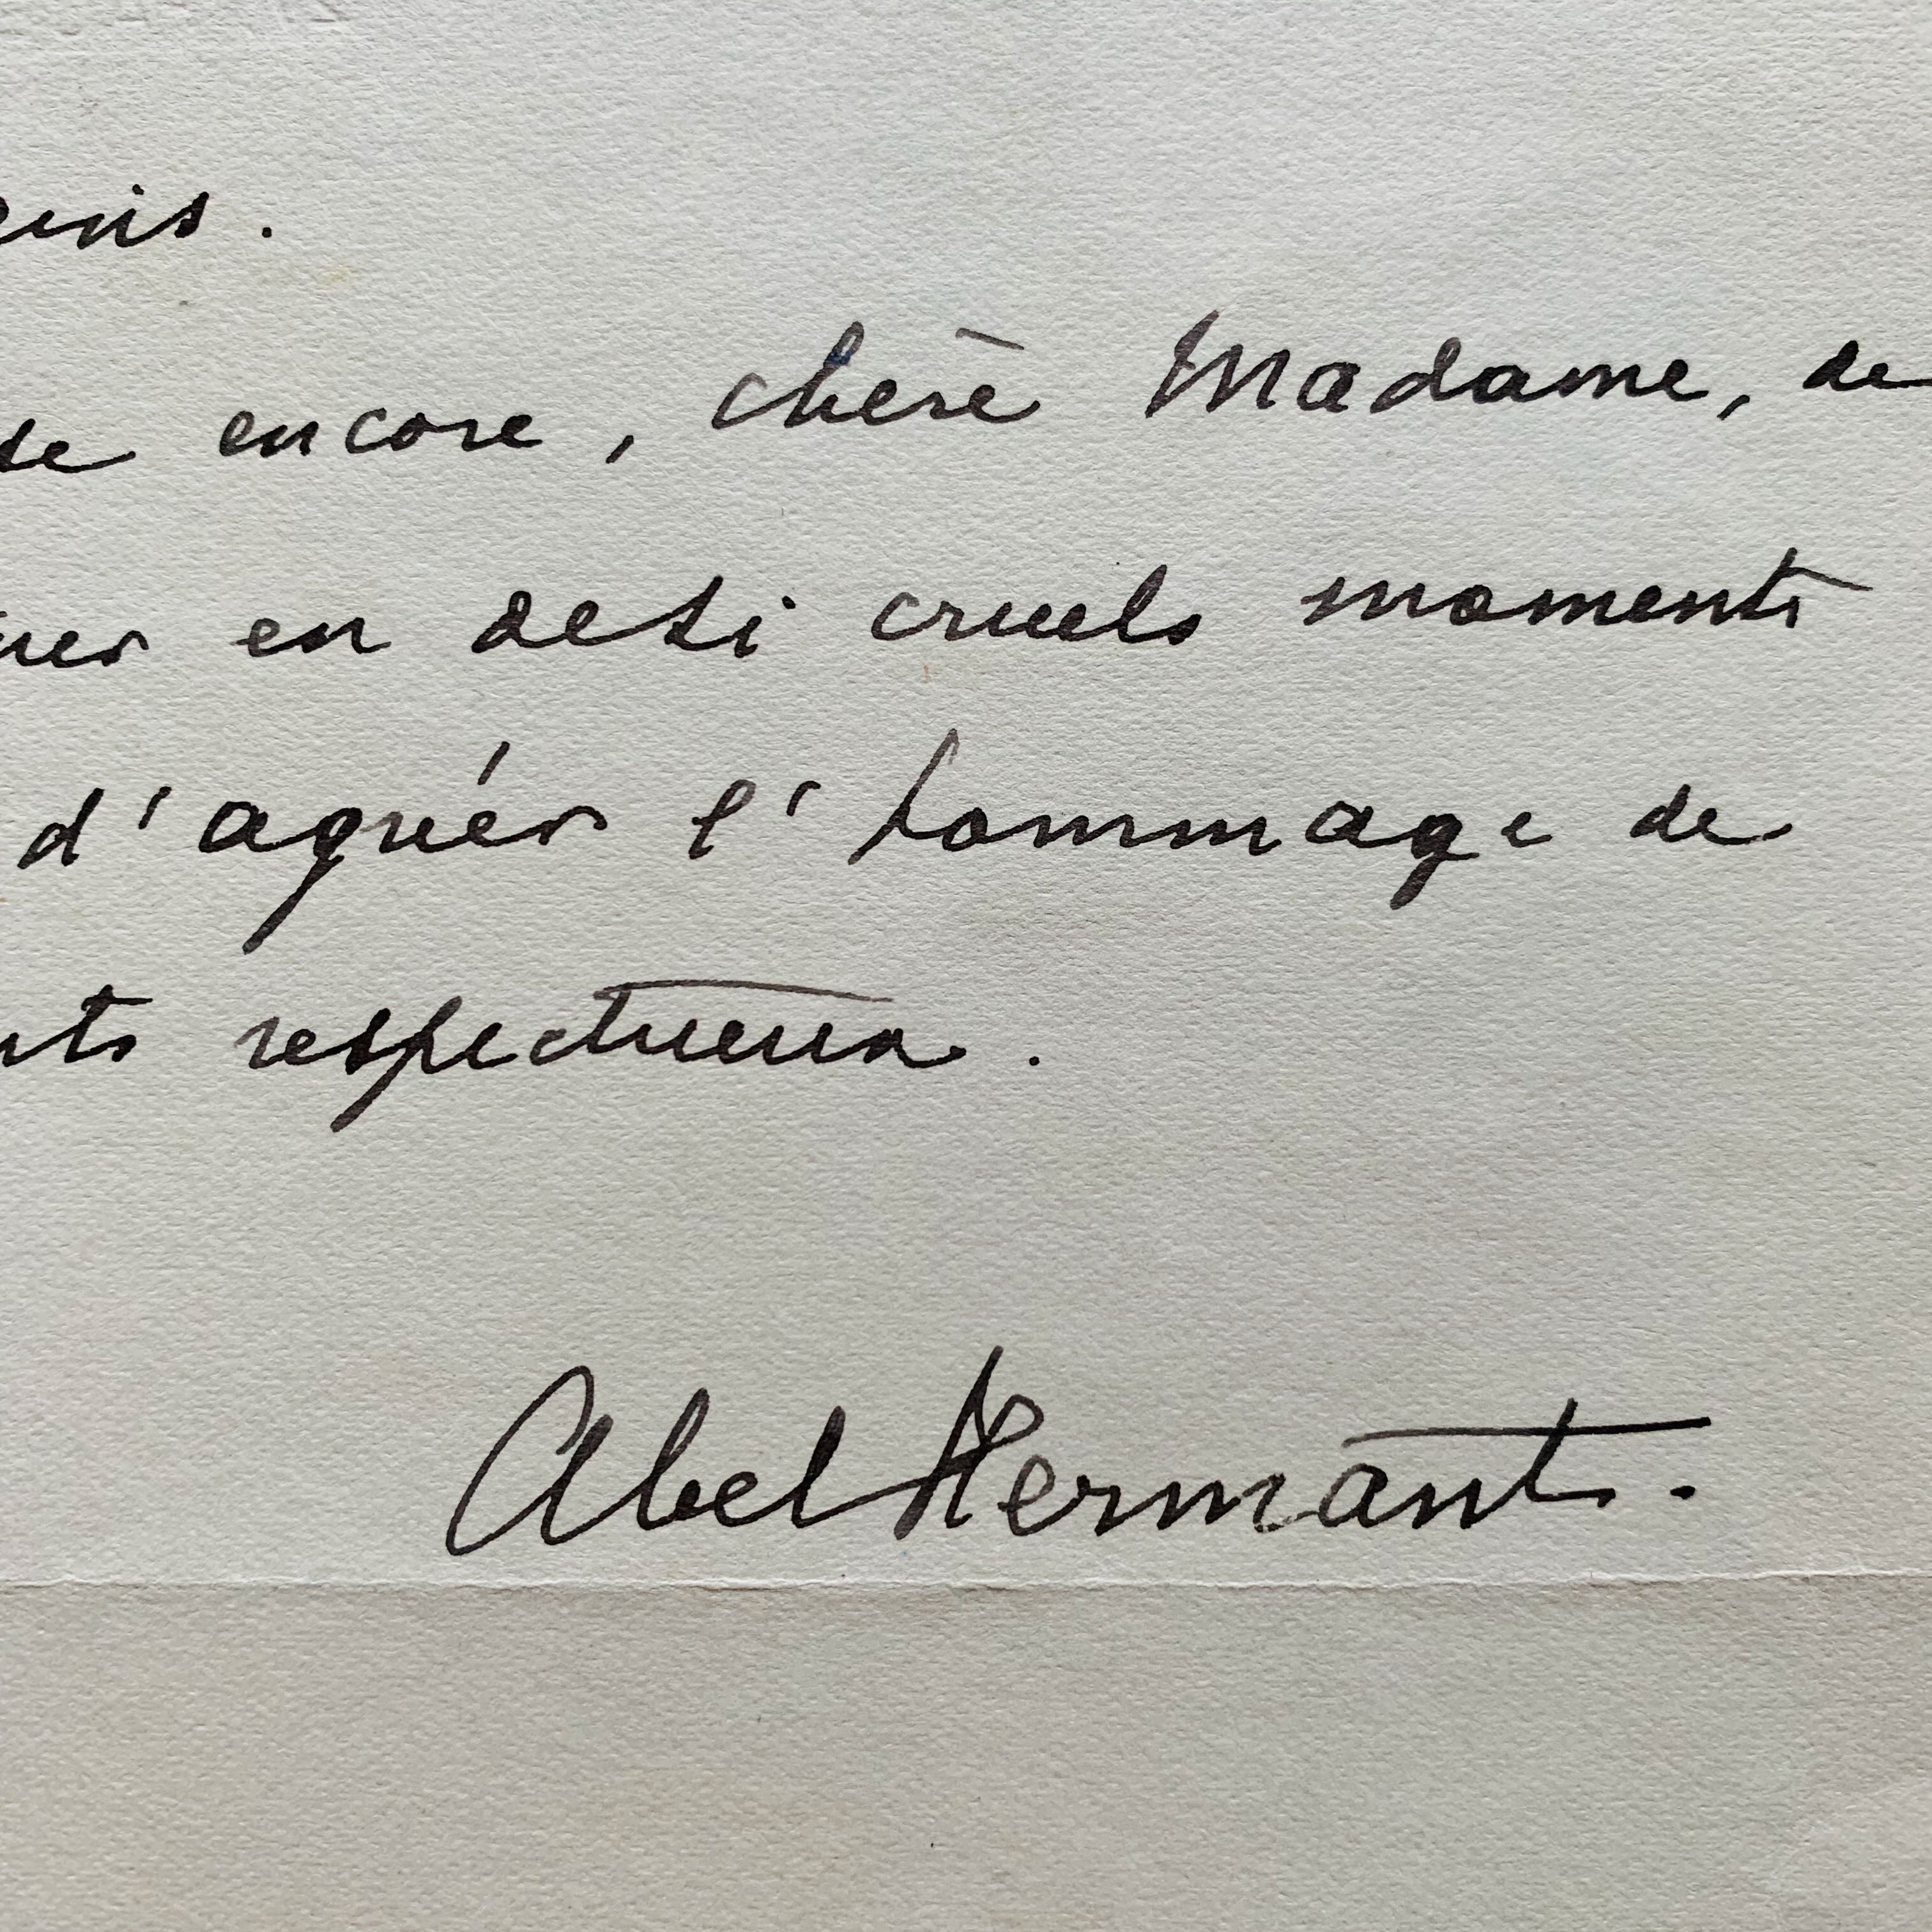 encore, chère Madame, de
en de si cruels moments
d'agréer l'hommage de
respectueux.
Abel Hermant.